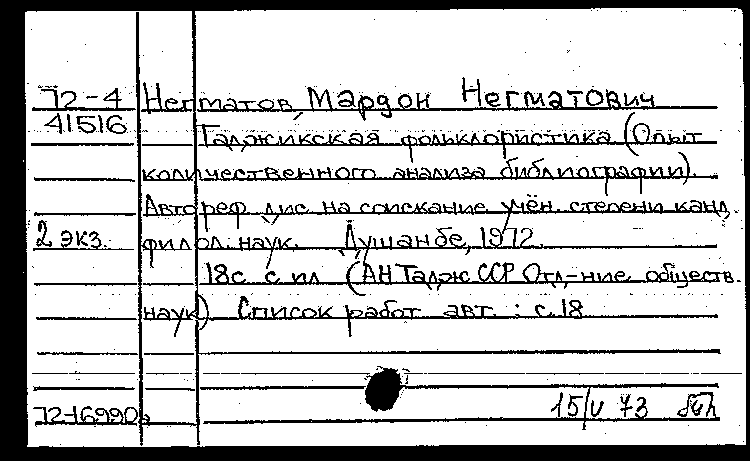 72-4 Негматов, Мардон Негматович
41516 Таджикская фольклористика (Опыт
количественного анализа библиографии).
Автореф. дис. на соискание учён. степени канд.
2 экз. филол. наук. Душанбе, 1972.
18с. с ил. (АН Тадж ССР Отд-ние обществ.
наук). Список работ авт.: с.18
72-16990 15/V 73